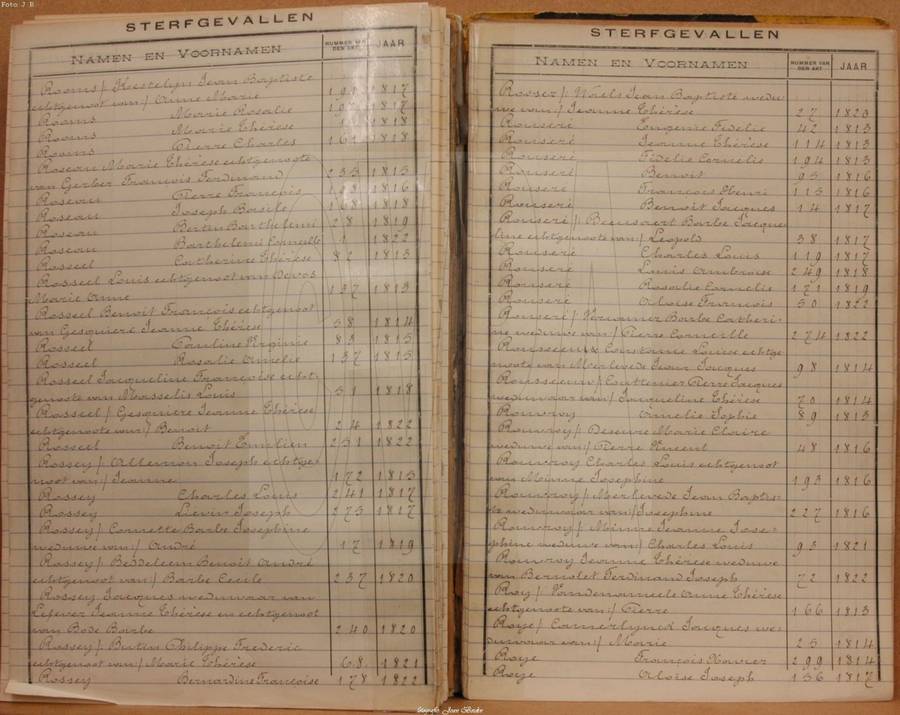 Foto: J B
STERFGEVALLEN
NAMEN EN VOORNAMEN NUMMER VAN DEN AKT JAAR
Rooms / Keestelyn Jean Baptiste
echtgenoot van / Anne Marie 1817
Rooms Marie Rosalie 1817
Rooms Marie Thérèse 1818
Rooms Pierre Charles 1818
Roseau Marie Thérèse echtgenoote
van Gerber François Ferdinand 1815
Roseau Pierre François 1816
Roseau Joseph Basile 1818
Roseau Bertin Barthelemi 28 1819
Roseau Barthelemi Corneille 1 1822
Rosseel Catherine Thérèse 82 1813
Rosseel Louis echtgenoot van
Marie Anne 137 1813
Rosseel Benoit François echtgenoot
van Gesquiere Jeanne Thérèse 58 1814
Rosseel Pauline Virginie 83 1815
Rosseel Rosalie Amelie 137 1815
Rosseel Jacqueline Françoise echt-
genoote van Masselis Louis 51 1818
Rosseel / Gesquiere Jeanne Thérèse
echtgenoote van / Benoit 24 1822
Rosseel Benoit Emilien 251 1822
Rossey / Alleman Joseph echtge-
noot van / Jeanne 172 1813
Rossey Charles Louis 241 1817
Rossey Lievin Joseph 275 1817
Rossey / Cornette Barbe Josephine
weduwe van / André 17 1819
Rossey / Beddeleem Benoit André
echtgenoot van / Barbe Cecile 237 1820
Rossey Jacques weduwaar van
Lefever Jeanne Thérèse en echtgenoot
van Bode Barbe 240 1820
Rossey / Butin Philippe Frederic
echtgenoot van / Marie Thérèse 68 1821
Rossey Bernardine Françoise 178 1822
STERFGEVALLEN
NAMEN EN VOORNAMEN NUMMER VAN DEN AKT JAAR
Rosser / Waels Jean Baptiste wedu-
we van / Jeanne Thérèse 27 1820
Rouseré Eugenie Fidelie 42 1813
Rouseré Jeanne Thérèse 114 1813
Rouseré Fidelie Cornelie 194 1813
Rouseré Benoit 95 1816
Rouseré François Henri 113 1816
Rouseré Benoit Jacques 14 1817
Rouseré / Beausaert Barbe Jacque-
line echtgenoote van / Leopold 38 1817
Rouseré Charles Louis 119 1817
Rouseré Louis Ambroise 249 1818
Rouseré Rosalie Cornelie 171 1819
Rouseré Aloise François 50 1822
Rouseré / Barbe Catheri-
ne weduwe van / Pierre Corneille 274 1822
Rousseeux Constance Louise echtge-
noote van Meerlevede Jean Jacques 98 1814
Rousseeuw / Couttenier Pierre Jacques
weduwaar van / Jacqueline Thérèse 70 1814
Rouvroy Amelie Sophie 89 1813
Rouvroy / Deseure Marie Claire
weduwe van / Pierre Vincent 48 1816
Rouvroy Charles Louis echtgenoot
van Minne Josephine 193 1816
Rouvroy / Merlevede Jean Baptis-
te weduwaar van / Josephine 227 1816
Rouvroy / Minne Jeanne Jose-
phine weduwe van / Charles Louis 93 1821
Rouvroy Jeanne Thérèse weduwe
van Bernolet Ferdinand Joseph 72 1822
Roy / Vandamaele Anne Thérèse
echtgenoote van / Pierre 166 1813
Roye / Cannerlynck Jacques we-
duwaar van / Marie 25 1814
Roye François Xavier 299 1814
Roye Aloise Joseph 136 1817